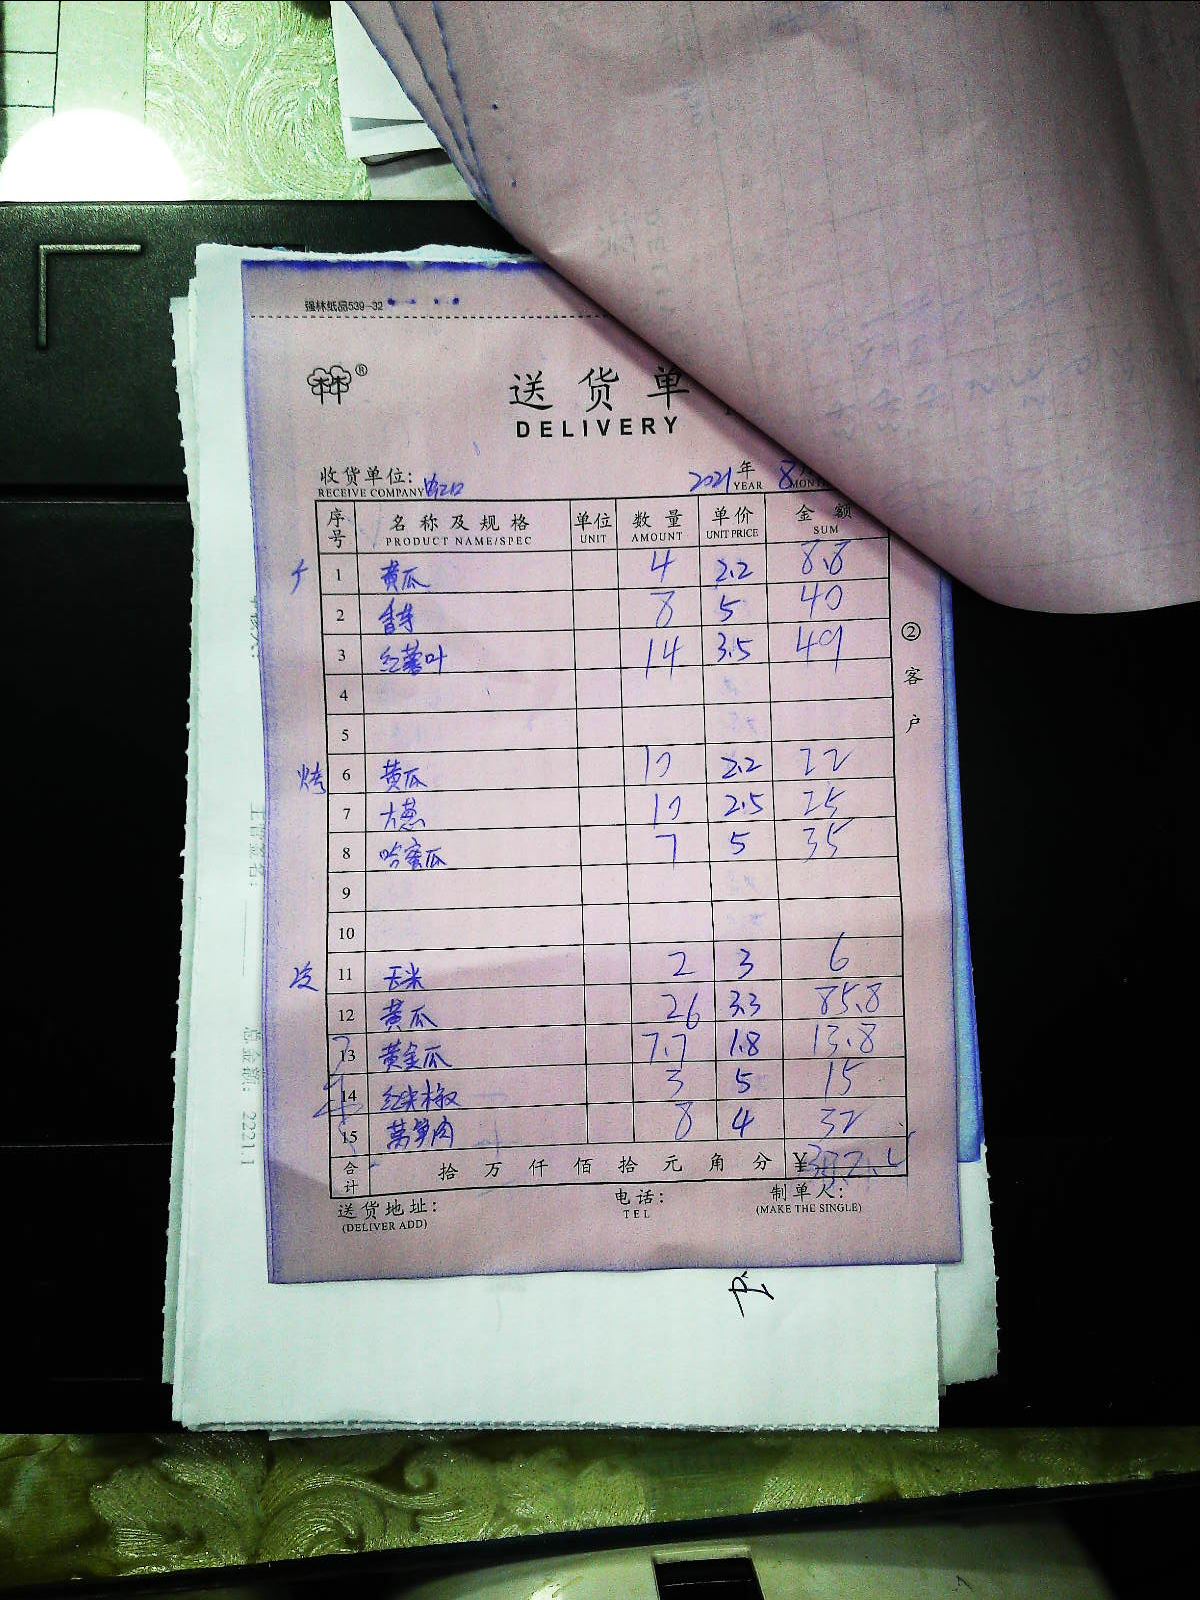 强林纸品539-32
林®
送货单
DELIVERY
收货单位:
RECEIVE COMPANY
2021年 8月
YEAR MONTH
序号 名称及规格 单位 数量 单价 金额
PRODUCT NAME/SPEC UNIT AMOUNT UNIT PRICE SUM
1 黄瓜 4 2.2 8.8
2 香芋 8 5 40
3 红薯叶 14 3.5 49
4
5
烤 6 黄瓜 10 2.2 22
7 大葱 10 2.5 25
8 哈蜜瓜 7 5 35
9
10
11 玉米 2 3 6
12 黄瓜 26 3.3 85.8
13 黄金瓜 7.7 1.8 13.8
14 红尖椒 3 5 15
15 莴笋肉 8 4 32
合计 拾万仟佰拾元角分 ¥
送货地址: 电话: 制单人:
(DELIVER ADD) TEL (MAKE THE SINGLE)
②客户
主管签名:
总金额: 2221.1